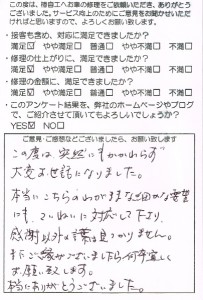 この度は、積善工へお車の修理をご依頼いただき、ありがとう
ございました。サービス向上のためにご意見をお聞かせいただ
ければと思いますので、よろしくお願い致します。
・接客も含め、対応に満足できましたか?
満足☑ やや満足□ 普通□ やや不満□ 不満□
・修理の仕上がりに、満足できましたか?
満足☑ やや満足□ 普通□ やや不満□ 不満□
・修理の金額に、満足できましたか?
満足☑ やや満足□ 普通□ やや不満□ 不満□
・このアンケート結果を、弊社のホームページやブログ
で、ご紹介させて頂いてもよろしいでしょうか?
YES☑ NO□
ご意見・ご感想などございましたら、お願い致します
この度は、突然にもかかわらず
大変お世話になりました。
本当にこちらのわがままな面的な要望
にも、ていねいに対応して下さり、
感謝以外の言葉は見つかりません。
またご縁がございましたら何卒宜しく
お願い致します。
本当にありがとうございました。